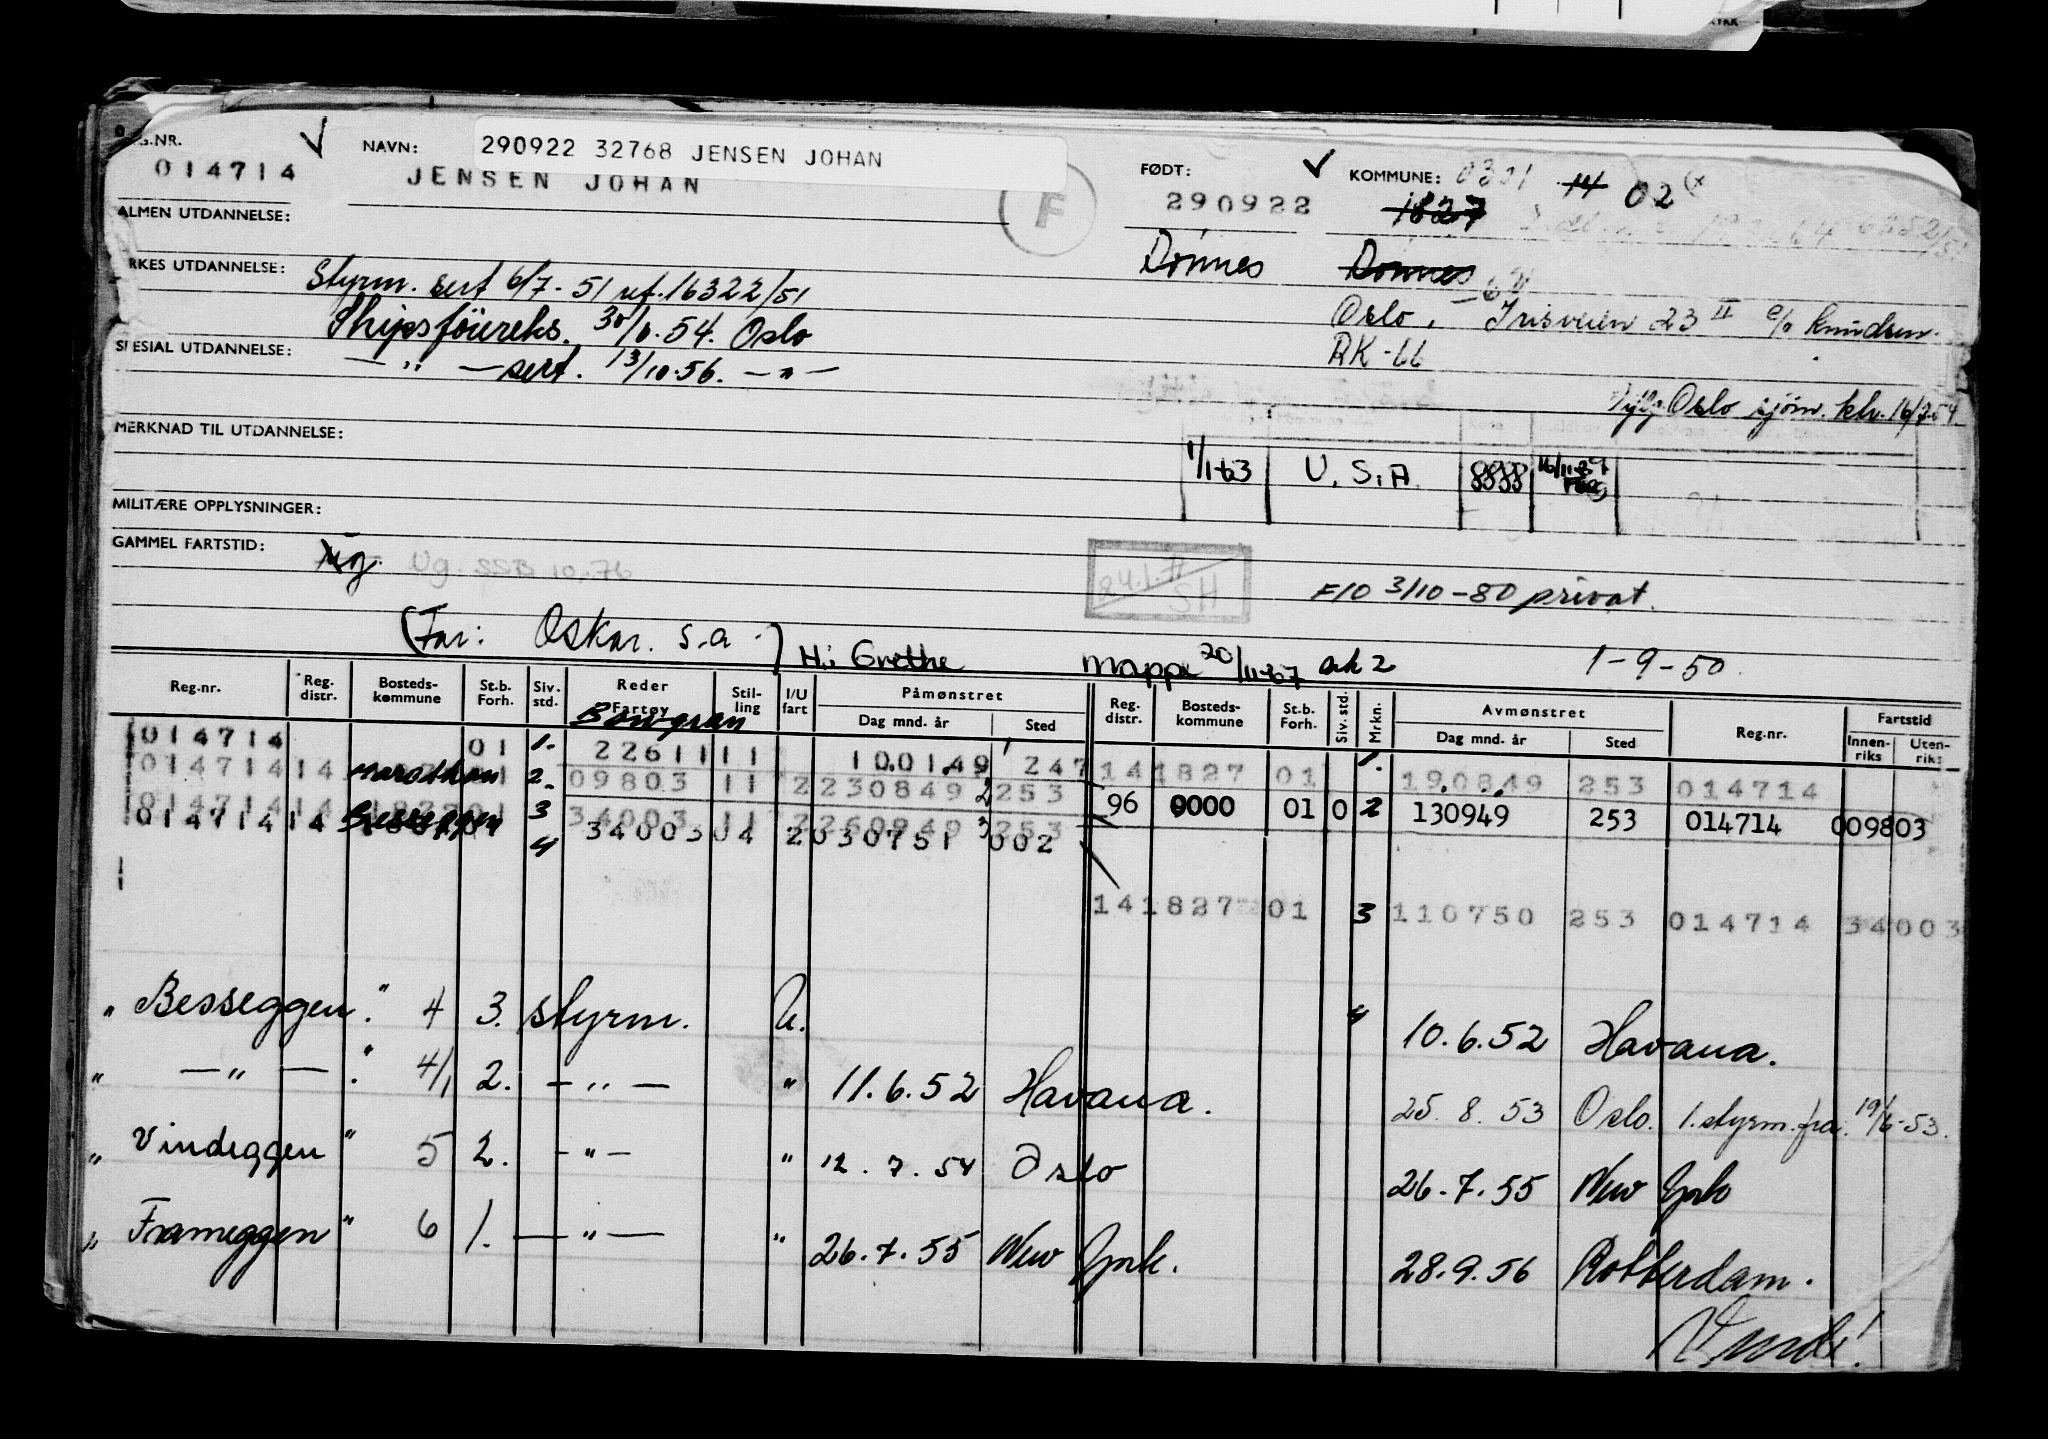 REG.NR.
NAVN:
290922 32768 JENSEN JOHAN
FØDT:
KOMMUNE: 0301 14 02
014714
JENSEN JOHAN
F
290922
1827
ALMEN UTDANNELSE:
Dönnes
Dönnes
YRKES UTDANNELSE:
Styrm. sert 6/7-51 ref. 16322/51
Oslo, Irisveien 23 II c/o Knudsen.
Skipsföureks. 30/6.54. Oslo
RK-66
SPESIAL UTDANNELSE:
— " — sert. 13/10.56. — " —
Oslo sjöm. ktr. 16/7.54
MERKNAD TIL UTDANNELSE:
1/1-63 U.S.A. 8888
MILITÆRE OPPLYSNINGER:
GAMMEL FARTSTID:
Ug. SSB 10.76
24.1.71
SH
F10 3/10-80 privat.
(Far: Oskar. s.a.)
H.: Grethe
Mappe 20/11-67 ark 2
1-9-50.
Reg.nr. Reg. distr. Bosteds-kommune St.b. Forh. Siv. std. Reder Fartøy Stil-ling I/U fart Påmønstret Dag mnd. år Sted Reg. distr. Bosteds-kommune St.b. Forh. Siv. std. Mrkn. Avmønstret Dag mnd. år Sted Reg.nr. Fartstid Innen-riks Uten-riks
Bowgran
014714 01 1. 22611 11 100149 247 14 1827 01 1. 190849 253 014714
014714 14 Marathon 2. 09803 11 2 230849 2 253 96 0000 01 0 2 130949 253 014714 009803
014714 14 1827 01 3 34003 11 2 260949 3 253
014714 14 Besseggen 4 34003 04 2 030751 002
14 1827 01 3 110750 253 014714 34003
" Besseggen". 4 3. styrm. U. 4 10.6.52 Havana.
" — " — ". 4/1 2. — " — " 11.6.52 Havana. 25.8.53 Oslo. 1. styrm. fra. 19/6-53.
" Vindeggen" 5 2. — " — " 12.7.54 Oslo 26.7.55 New York
" Frameggen" 6 1. — " — " 26.7.55 New York. 28.9.56 Rotterdam.
Vend!